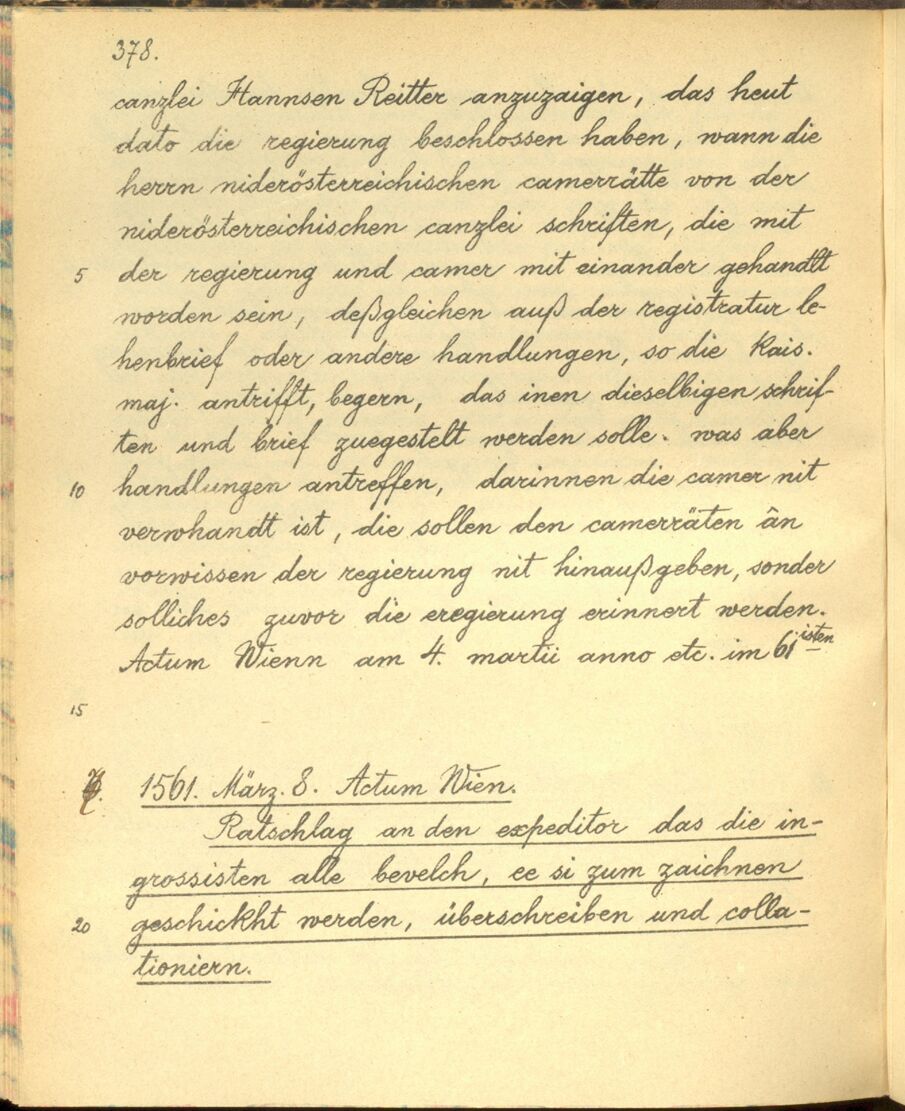 378.
canzlei Hannsen Reitter anzuzaigen, das heut
dato die regierung beschlossen haben, wann die
herrn niderösterreichischen camerrätte von der
niderösterreichischen canzlei schriften, die mit
5 der regierung und camer mit einander gehandlt
worden sein, deßgleichen auß der registratur le-
henbrief oder andere handlungen, so die Kais.
maj. antrifft, begern, das inen dieselbigen schrif-
ten und brief zuegestelt werden solle. was aber
10 handlungen antreffen, darinnen die camer nit
verwhandt ist, die sollen den camerräten ân
vorwissen der regierung nit hinaußgeben, sonder
solliches zuvor die eregierung erinnert werden.
Actum Wienn am 4. martii anno etc. im 61isten
15
1561. März. 8. Actum Wien.
Ratschlag an den expeditor das die in-
grossisten alle bevelch, ee si zum zaichnen
20 geschickht werden, überschreiben und colla-
tioniern.